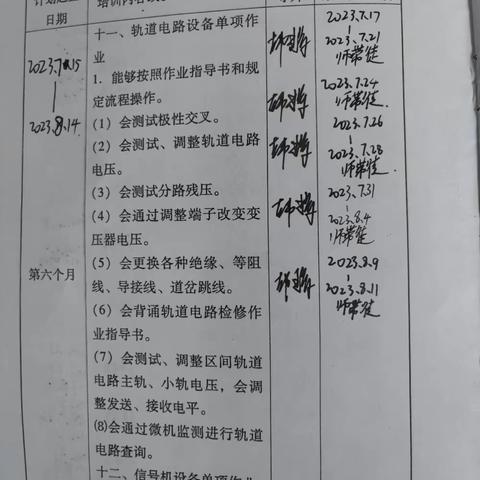 日期
十一、轨道电路设备单项作
业
1．能够按照作业指导书和规
定流程操作。
(1) 会测试极性交叉。
(2) 会测试、调整轨道电路
电压。
(3) 会测试分路残压。
(4) 会通过调整端子改变变
压器电压。
(5) 会更换各种绝缘、等阻
线、导接线、道岔跳线。
(6) 会背诵轨道电路检修作
业指导书。
(7) 会测试、调整区间轨道
电路主轨、小轨电压，会调
整发送、接收电平。
⑻会通过微机监测进行轨道
电路查询。
十二、信号机设备单项作业
2023.7.15
2023.8.14
第六个月
2023.7.17
2023.7.21
师带徒
2023.7.24
师带徒
2023.7.26
2023.7.28
师带徒.
2023.7.31
2023.8.4
师带徒
2023.8.9
2023.8.11
师带徒